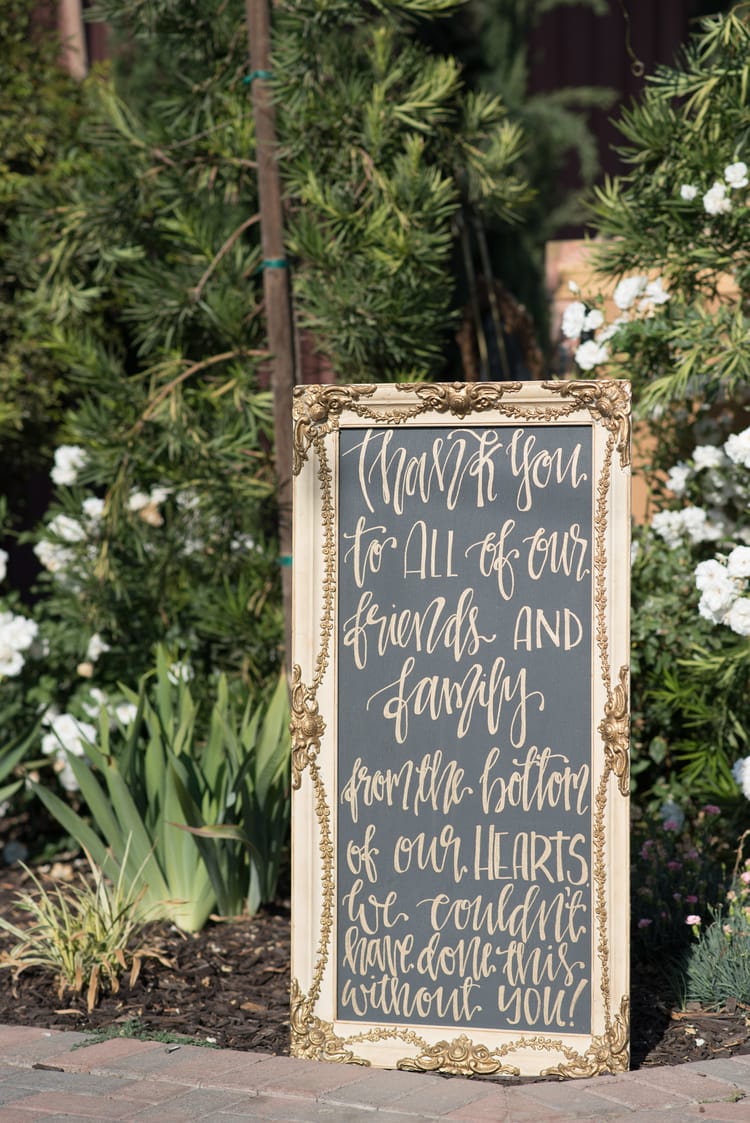 thank you
to ALL of our
friends AND
family
from the bottom
of our HEARTS.
We couldn't
have done this
without YOU!